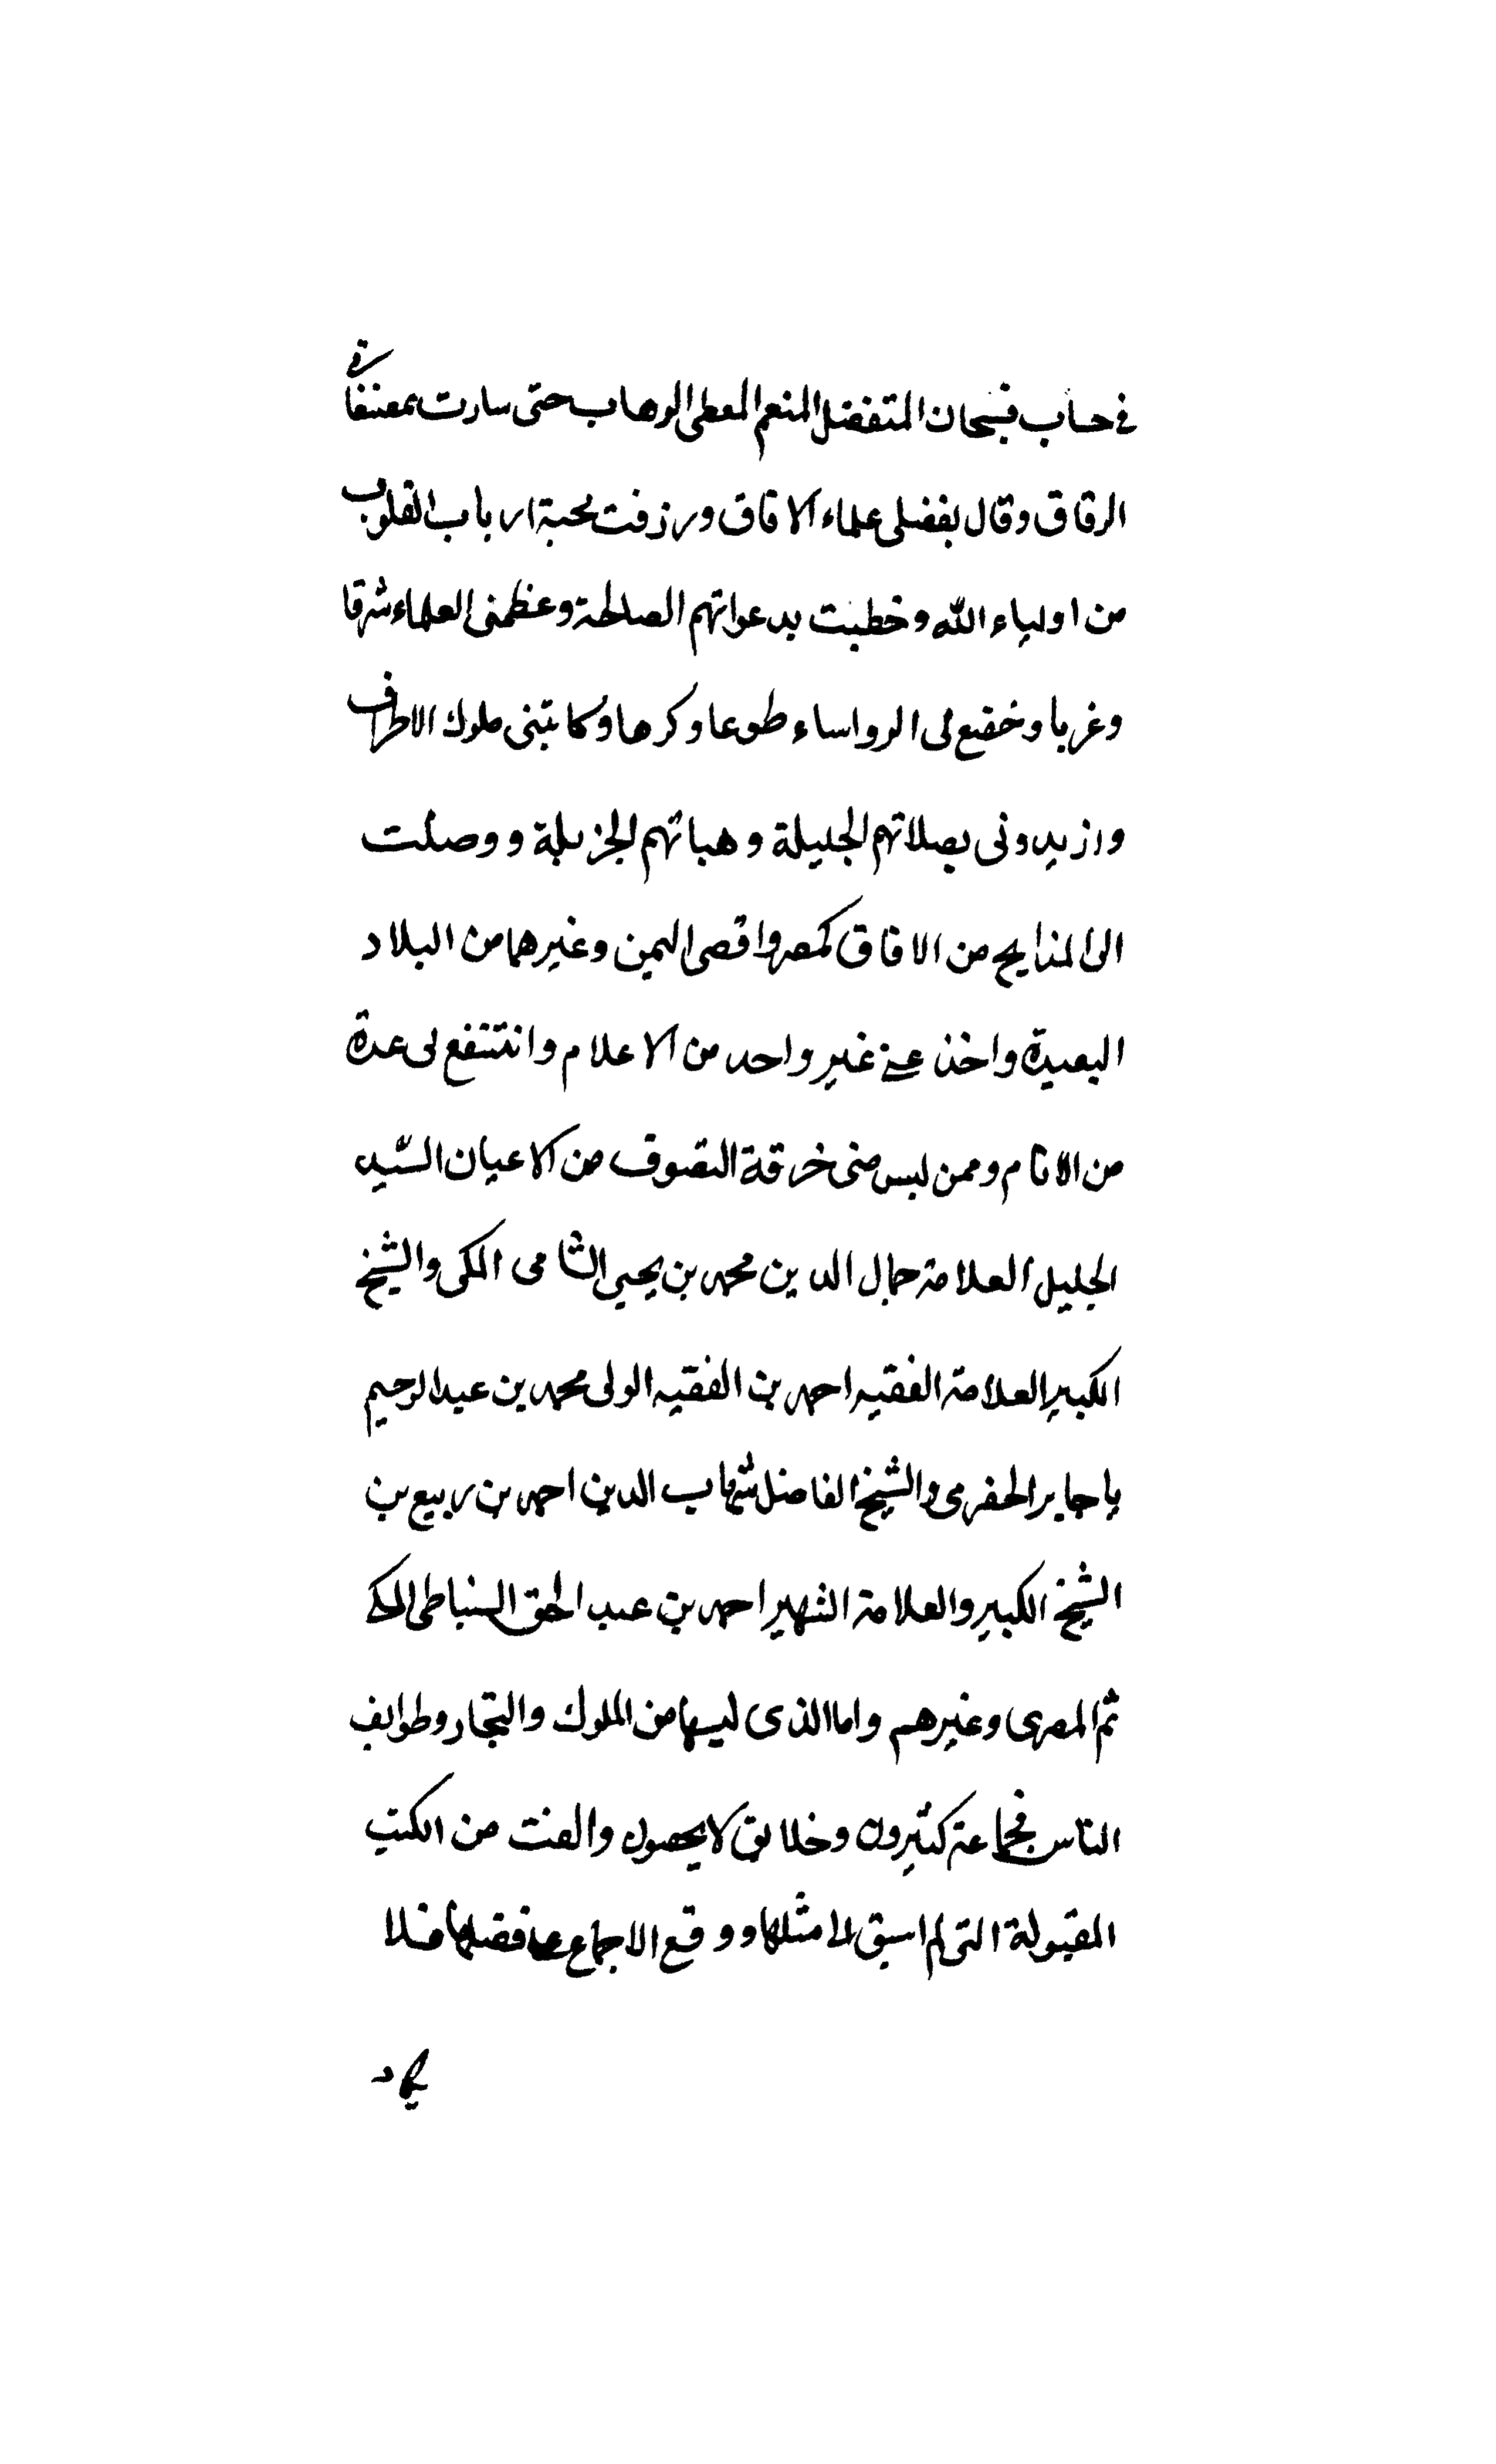 في حساب فسبحان المتفضل المنعم المعطى الوهاب حتى سارت بمصنفاتي
الرقاق وقال بفضلى علماء الافاق ورزقت محبة ارباب القلوب
من اولياء الله وخطبت بدعواتهم الصالحة وعظمنى العلماء شرقا
وغربا وخضع لى الرواساء طوعا وكرها وكاتبنى ملوك الاطراف
وازيدونى بصلاتهم الجليلة وهباتهم الجزيلة ووصلت
الى المنايح من الافاق كمصر واقصى اليمن وغيرهما من البلاد
البعيدة واخذ عني غير واحد من الاعلام وانتنفع لى عدة
من الانام وممن لبس منى خرقة التصوف من الاعيان السّيد
الجليل العلامة جمال الدين محمد بن يحيى الشامى المكى والشيخ
الكبير العلامة الفقيه احمد بن الفقيه الولى محمد بن عبد الرحيم
باجابر الحضرمى والشيخ الفاضل شهاب الدين احمد بن ربيع بن
الشيخ الكبير والعلامة الشهير احمد بن عبد الحق السنباطى المكي
ثم المصرى وغيرهم واما الذى لبسها من الملوك والتجار وطوايف
الناس فجماعة كثيرون وخلايق لا يحصون والفت من الكتب
المقبولة التى لم اسبق الى مثلها ووقع الاجماع على فضلها فلا